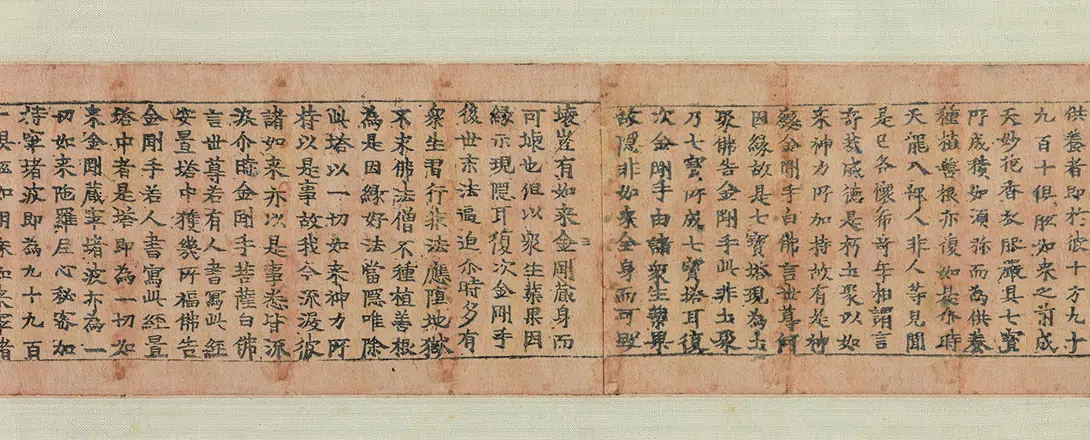 供養者即於彼十方九十
九百十俱胝如來之前成
天妙花香衣服嚴具七寶
所成積如須弥而為供養
種植善根亦復如是尒時
天龍八部人非人等見聞
是已各懷希奇牙相謂言
奇哉威德是朽土聚以如
來神力所加持故有是神
變金剛手白佛言世尊何
因緣故是七寶塔現為土
聚佛告金剛手此非土聚
乃七寶所成七寶塔耳復
次金剛手由諸衆生業果
故隱非如來全身而可毀
壞豈有如來金剛藏身而
可壞也但以衆生業果因
緣示現隱耳復次金剛手
後世末法逼迫尒時多有
衆生習行非法應堕地獄
不求佛法僧不種植善根
為是因緣好法當隱唯除
此塔以一切如来神力所
持以是事故我今流淚彼
諸如来亦以是事悉皆流
淚尒時金剛手菩薩白佛
言世尊若有人書寫此經
安置塔中獲幾所福佛告
金剛手若人書寫此經置
塔中者是塔即為一切如
來金剛藏窣堵波亦為一
切如来陁羅尼心秘密加
持窣堵波即為九十九百
俱胝如胡麻如來窣堵